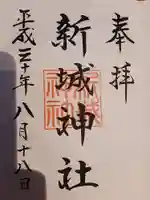 奉拝
新城神社
平成三十年八月十八日